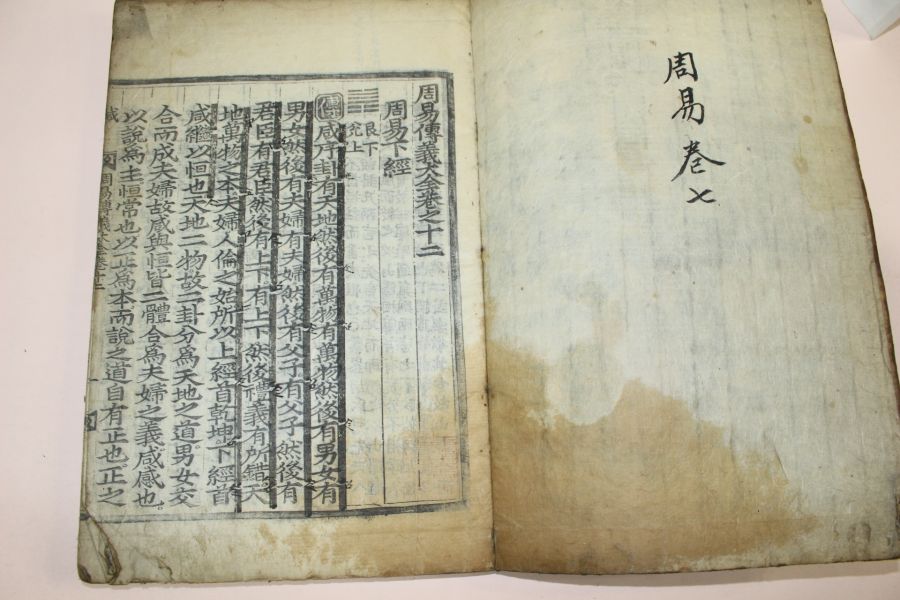 周易卷七
周易傳義大全卷之十二
周易下經
艮下
兌上
傳咸序卦有天地然後有萬物有萬物然後有男女有
男女然後有夫婦有夫婦然後有父子有父子然後有
君臣有君臣然後有上下有上下然後禮義有所錯天
地萬物之本夫婦人倫之始所以上經首乾坤下經首
咸繼以恒也天地二物故二卦分爲天地之道男女交
合而成夫婦故咸與恒皆二體合爲夫婦之義咸感也
以說爲主恒常也以正爲本而說之道自有正也正之
咸
周易傳義大全卷十二